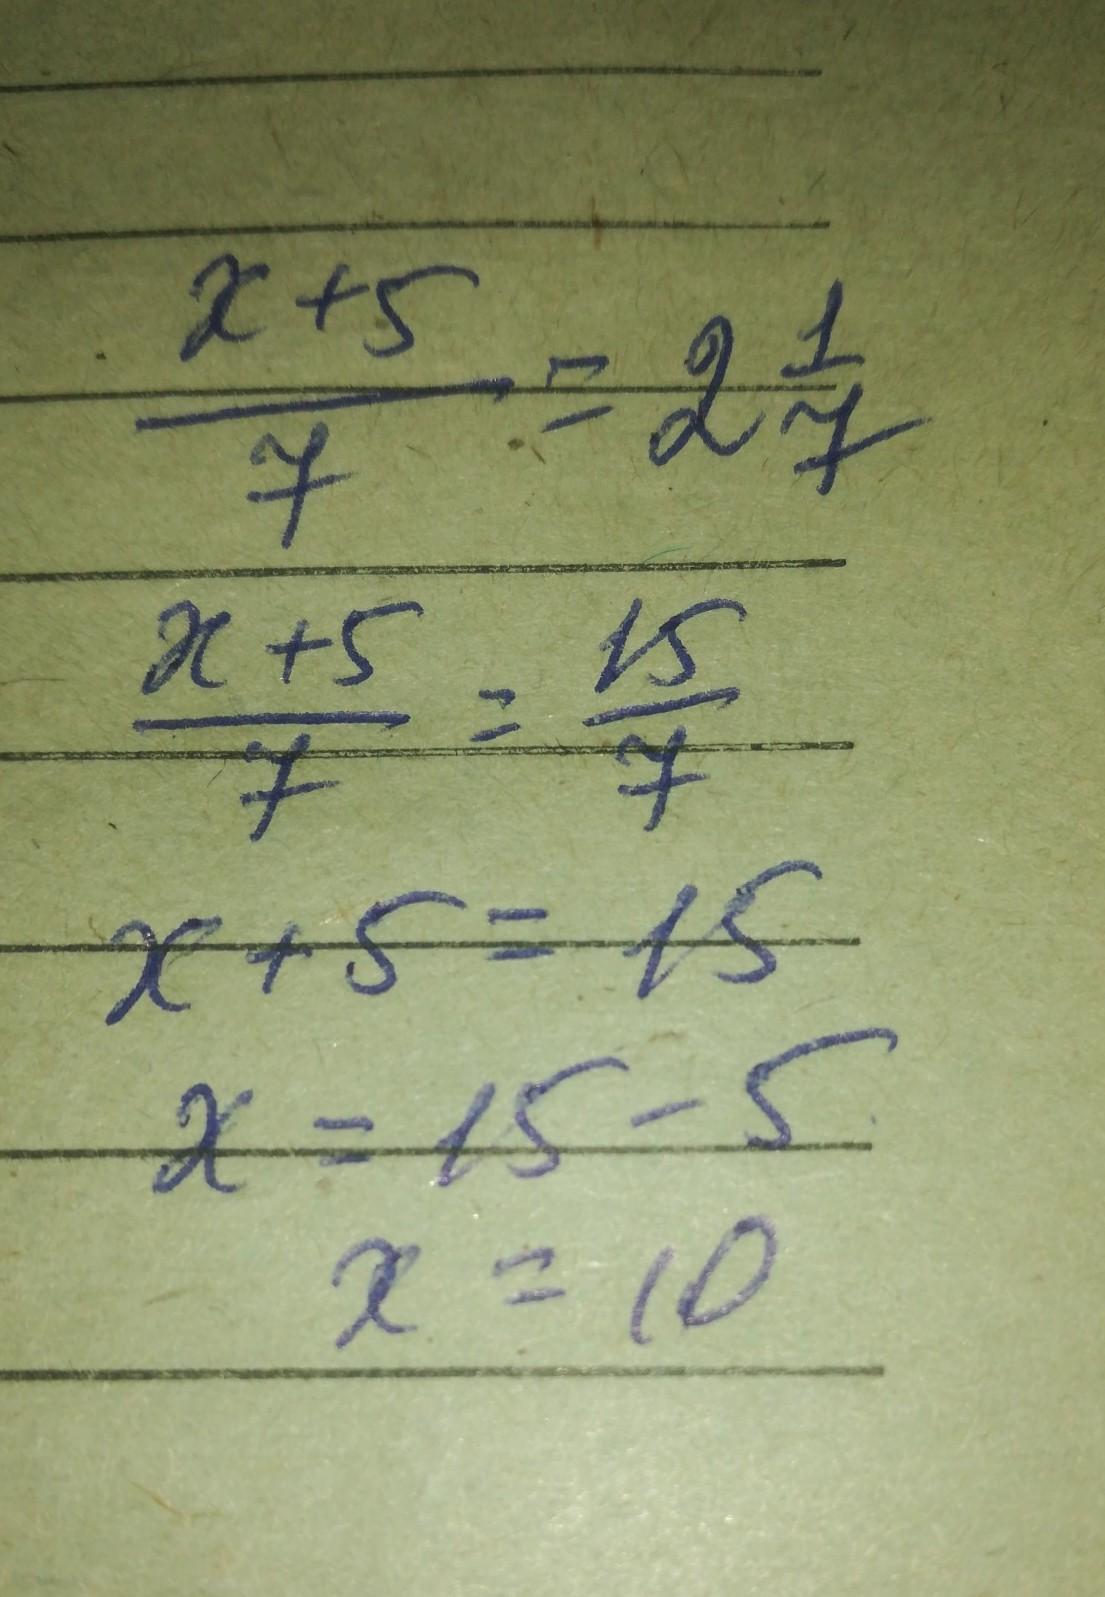 x+5/7 = 2 1/7
x+5/7 = 15/7
x+5=15
x = 15-5
x = 10